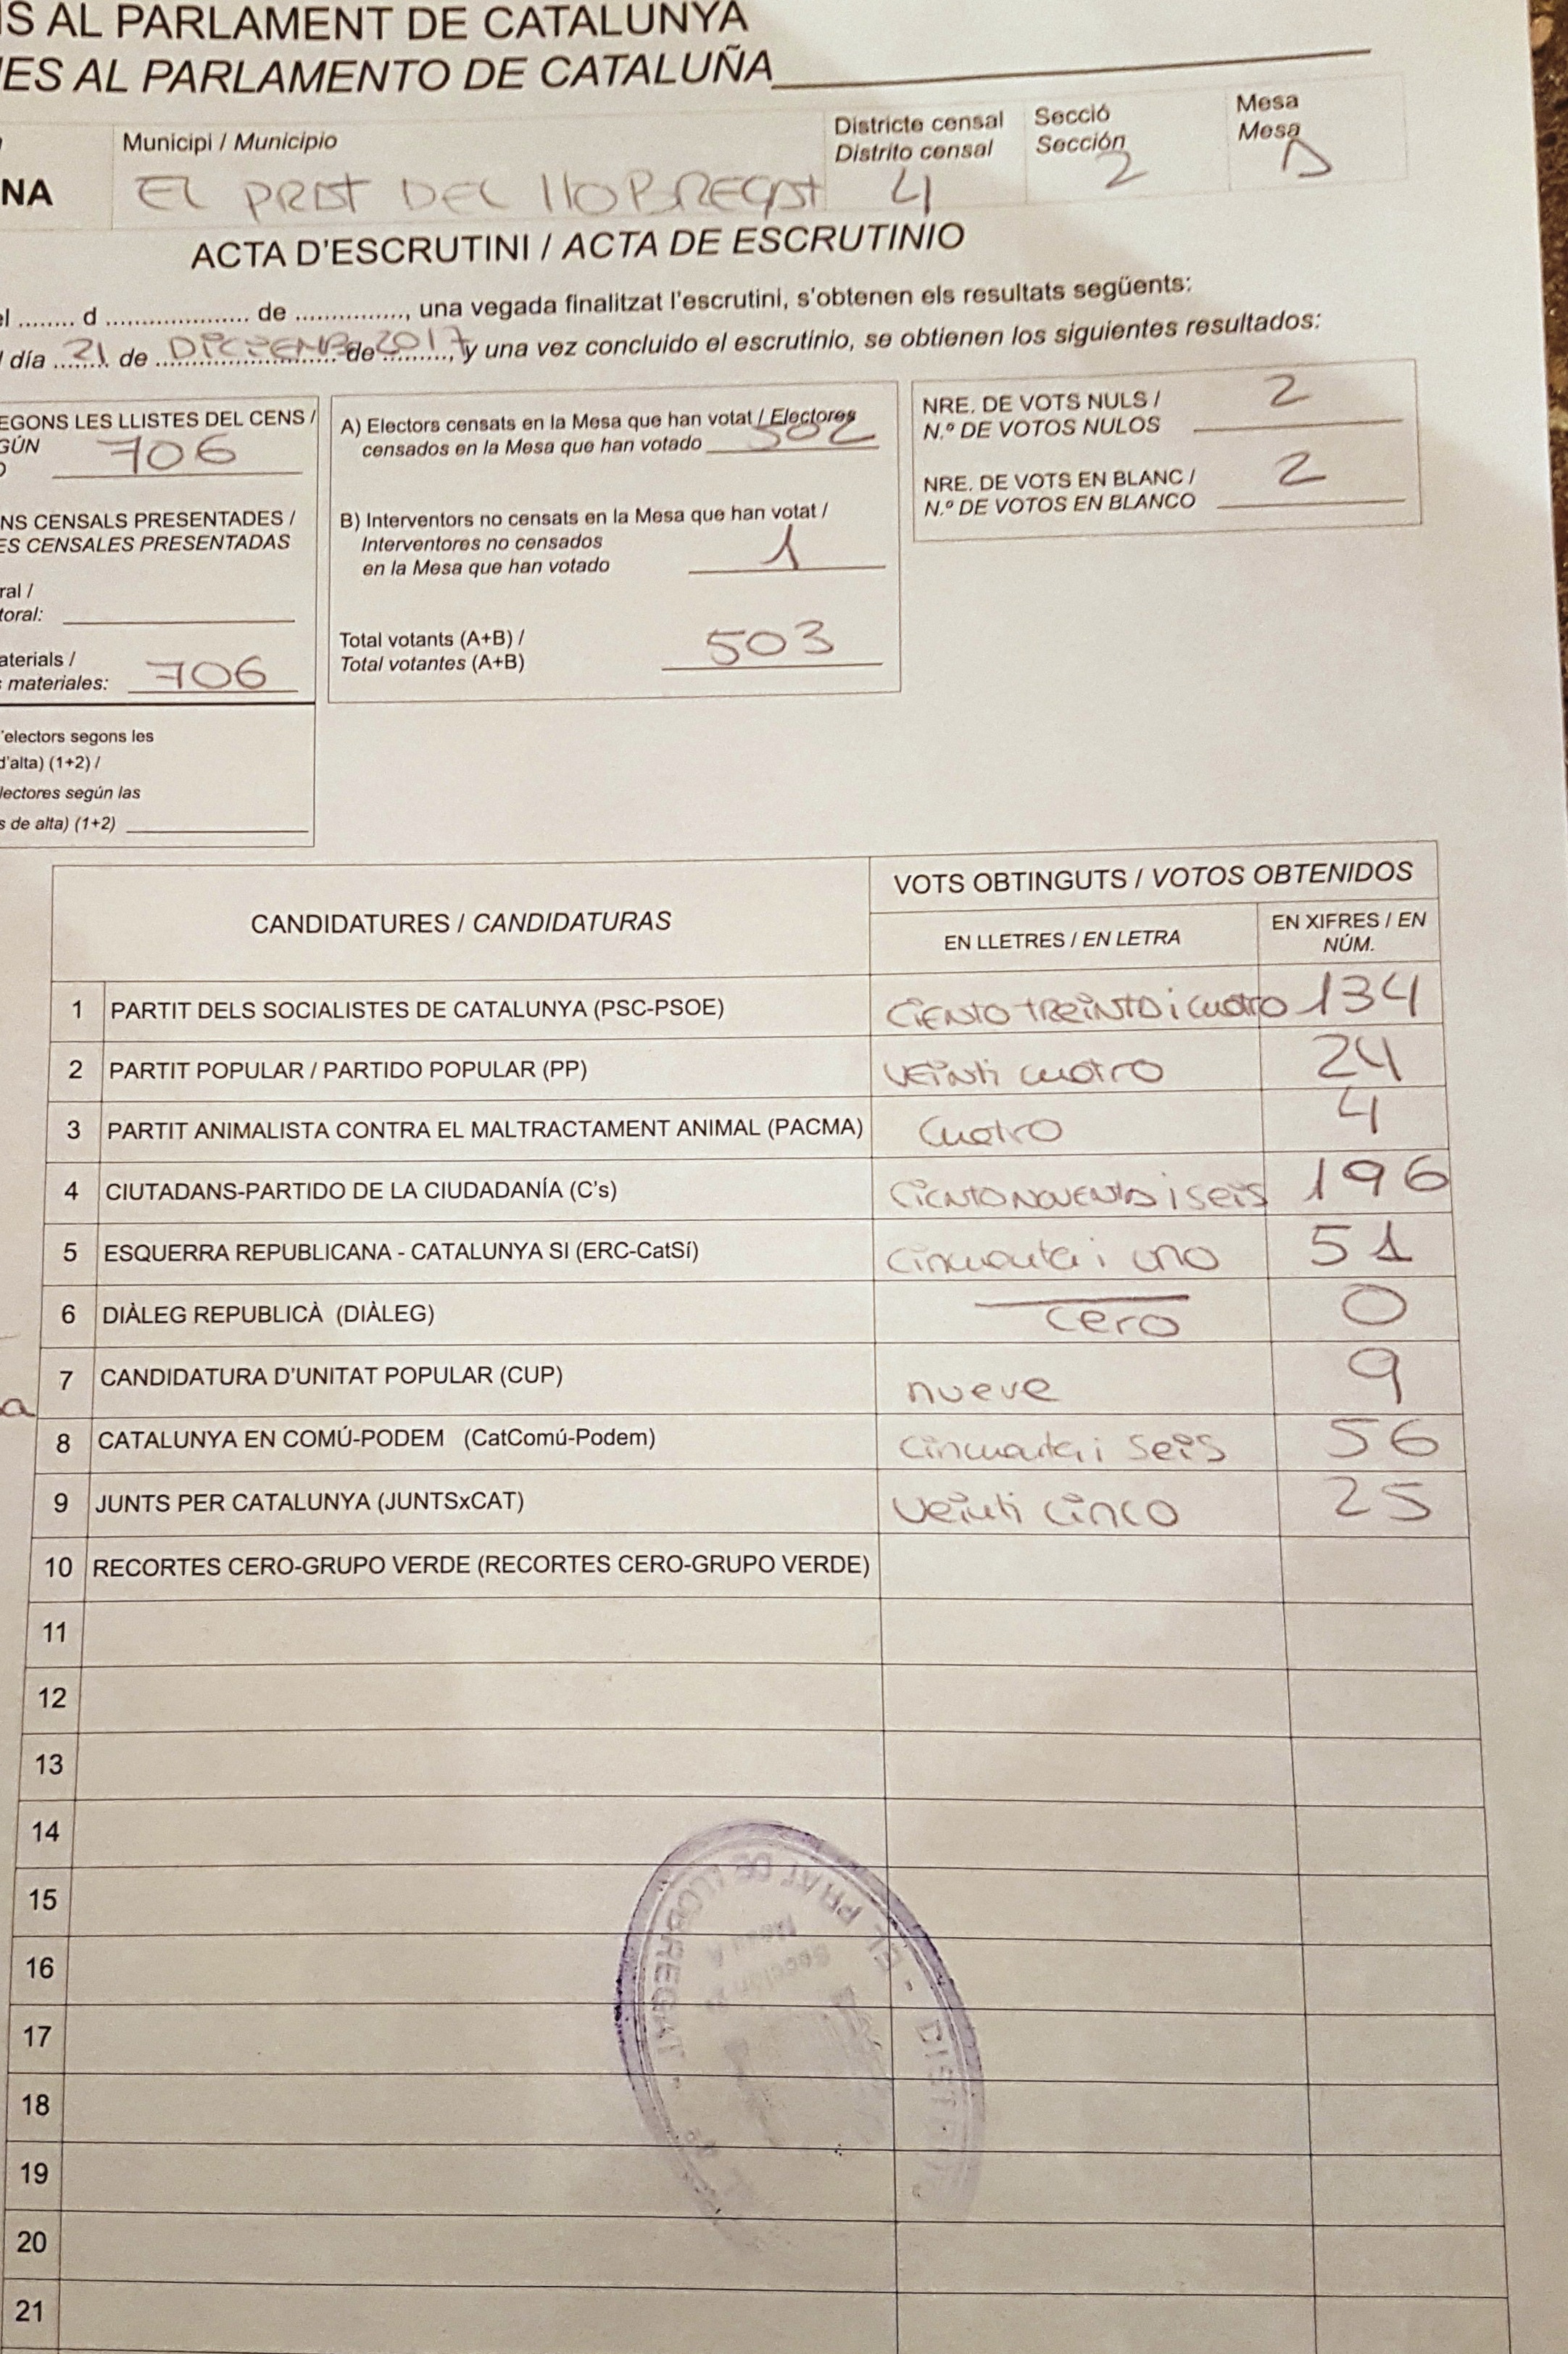 NS AL PARLAMENT DE CATALUNYA
NES AL PARLAMENTO DE CATALUÑA
NA
Municipi / Municipio
EL PRAT DEL llOBREGAT
Districte censal
Distrito censal
4
Secció
Sección
2
Mesa
Mesa
A
ACTA D'ESCRUTINI / ACTA DE ESCRUTINIO
el ........ d ..................... de ................, una vegada finalitzat l'escrutini, s'obtenen els resultats següents:
día 21 de DICIEMB de 2017, y una vez concluido el escrutinio, se obtienen los siguientes resultados:
EGONS LES LLISTES DEL CENS /
GÚN
706
NS CENSALS PRESENTADES /
ES CENSALES PRESENTADAS
ral /
toral:
aterials /
s materiales: 706
'electors segons les
d'alta) (1+2) /
lectores según las
s de alta) (1+2)
A) Electors censats en la Mesa que han votat / Electores
censados en la Mesa que han votado 502
B) Interventors no censats en la Mesa que han votat /
Interventores no censados
en la Mesa que han votado 1
Total votants (A+B) /
Total votantes (A+B) 503
NRE. DE VOTS NULS /
N.º DE VOTOS NULOS 2
NRE. DE VOTS EN BLANC /
N.º DE VOTOS EN BLANCO 2
CANDIDATURES / CANDIDATURAS
VOTS OBTINGUTS / VOTOS OBTENIDOS
EN LLETRES / EN LETRA
EN XIFRES / EN
NÚM.
1 PARTIT DELS SOCIALISTES DE CATALUNYA (PSC-PSOE) CIENTO TREINTA i cuatro 134
2 PARTIT POPULAR / PARTIDO POPULAR (PP) VEinti cuatro 24
3 PARTIT ANIMALISTA CONTRA EL MALTRACTAMENT ANIMAL (PACMA) Cuatro 4
4 CIUTADANS-PARTIDO DE LA CIUDADANÍA (C's) CIENTO NOVENTA i seis 196
5 ESQUERRA REPUBLICANA - CATALUNYA SI (ERC-CatSí) Cincuenta i uno 51
6 DIÀLEG REPUBLICÀ (DIÀLEG) cero 0
7 CANDIDATURA D'UNITAT POPULAR (CUP) nueve 9
8 CATALUNYA EN COMÚ-PODEM (CatComú-Podem) Cincuenta i Seis 56
9 JUNTS PER CATALUNYA (JUNTSxCAT) Veinti cinco 25
10 RECORTES CERO-GRUPO VERDE (RECORTES CERO-GRUPO VERDE)
11
12
13
14
15
16
17
18
19
20
21
EL PRAT DE LLOBREGAT - DIST.
Sección 2
Mesa A